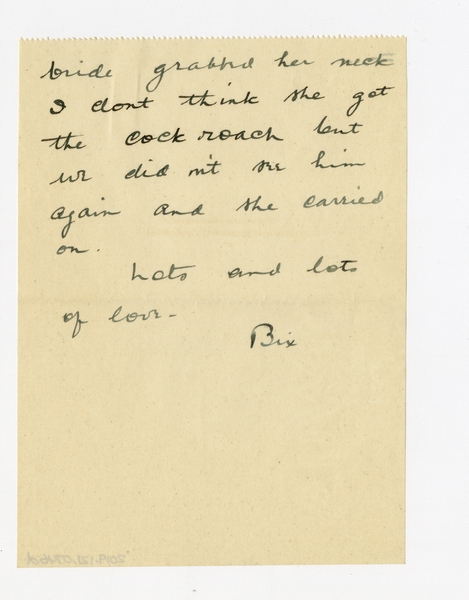 bride grabbed her neck
I dont think she got
the cock roach but
we did n't see him
again and she carried
on.
Lots and lots
of love-
Bix